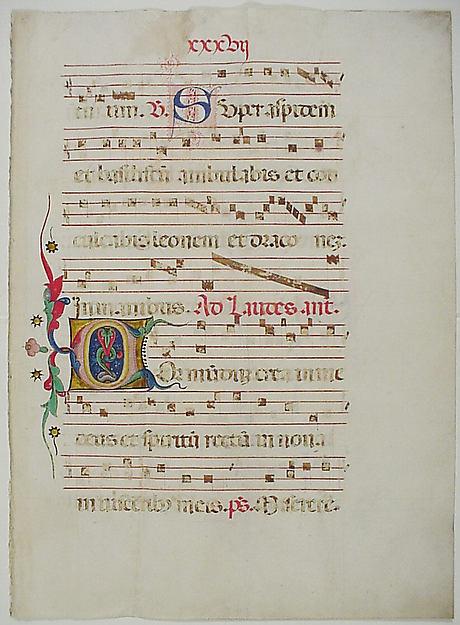 xxxvij
tuum. V. Super aspidem
et basiliscū ambulabis et con
culcabis leonem et draco nez.
In manibus. Ad Laudes. ant.
Cor mūdū crea in me
deus et spiritū rectū in noua
in visceribus meis. ps. Miserere.